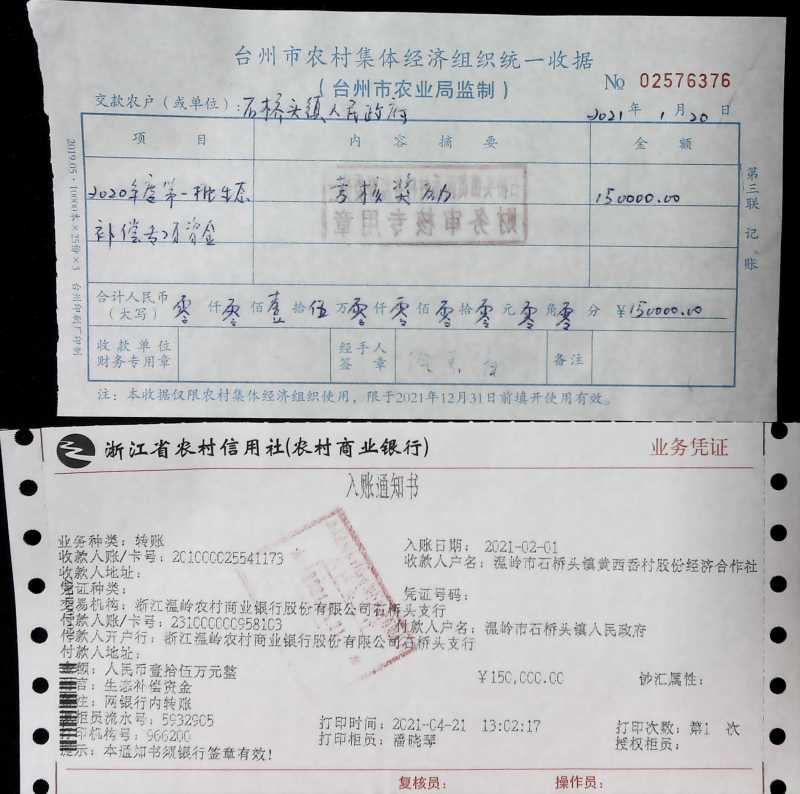 台州市农村集体经济组织统一收据
(台州市农业局监制)
№ 02576376
交款农户(或单位):石桥头镇人民政府 2021年1月20日
项目 内容摘要 金额
2020年度第一批生态 考核奖励 150000.00
补偿专项资金
财务审核专用章
合计人民币(大写) 零仟零佰壹拾伍万零仟零佰零拾零元零角零分 ¥150000.00
收款单位财务专用章 经手人签章 备注
注:本收据仅限农村集体经济组织使用,限于2021年12月31日前填开使用有效。
第三联 记账
2019.05·10000本×25份×3 台州印刷厂印制
浙江省农村信用社(农村商业银行) 业务凭证
入账通知书
业务种类:转账 入账日期: 2021-02-01
收款人账/卡号:201000025541173 收款人户名:温岭市石桥头镇黄西岙村股份经济合作社
收款人地址:
凭证种类: 凭证号码:
交易机构:浙江温岭农村商业银行股份有限公司石桥头支行
付款人账/卡号:231000000958103 付款人户名:温岭市石桥头镇人民政府
付款人开户行:浙江温岭农村商业银行股份有限公司石桥头支行
付款人地址:
金额:人民币壹拾伍万元整 ¥150,000.00 钞汇属性:
言:生态补偿资金
注:网银行内转账
柜员流水号:5932905 打印时间:2021-04-21 13:02:17 打印次数:第1 次
打印机构号:966200 打印柜员:潘晓琴 授权柜员:
提示:本通知书须银行签章有效!
复核员: 操作员: